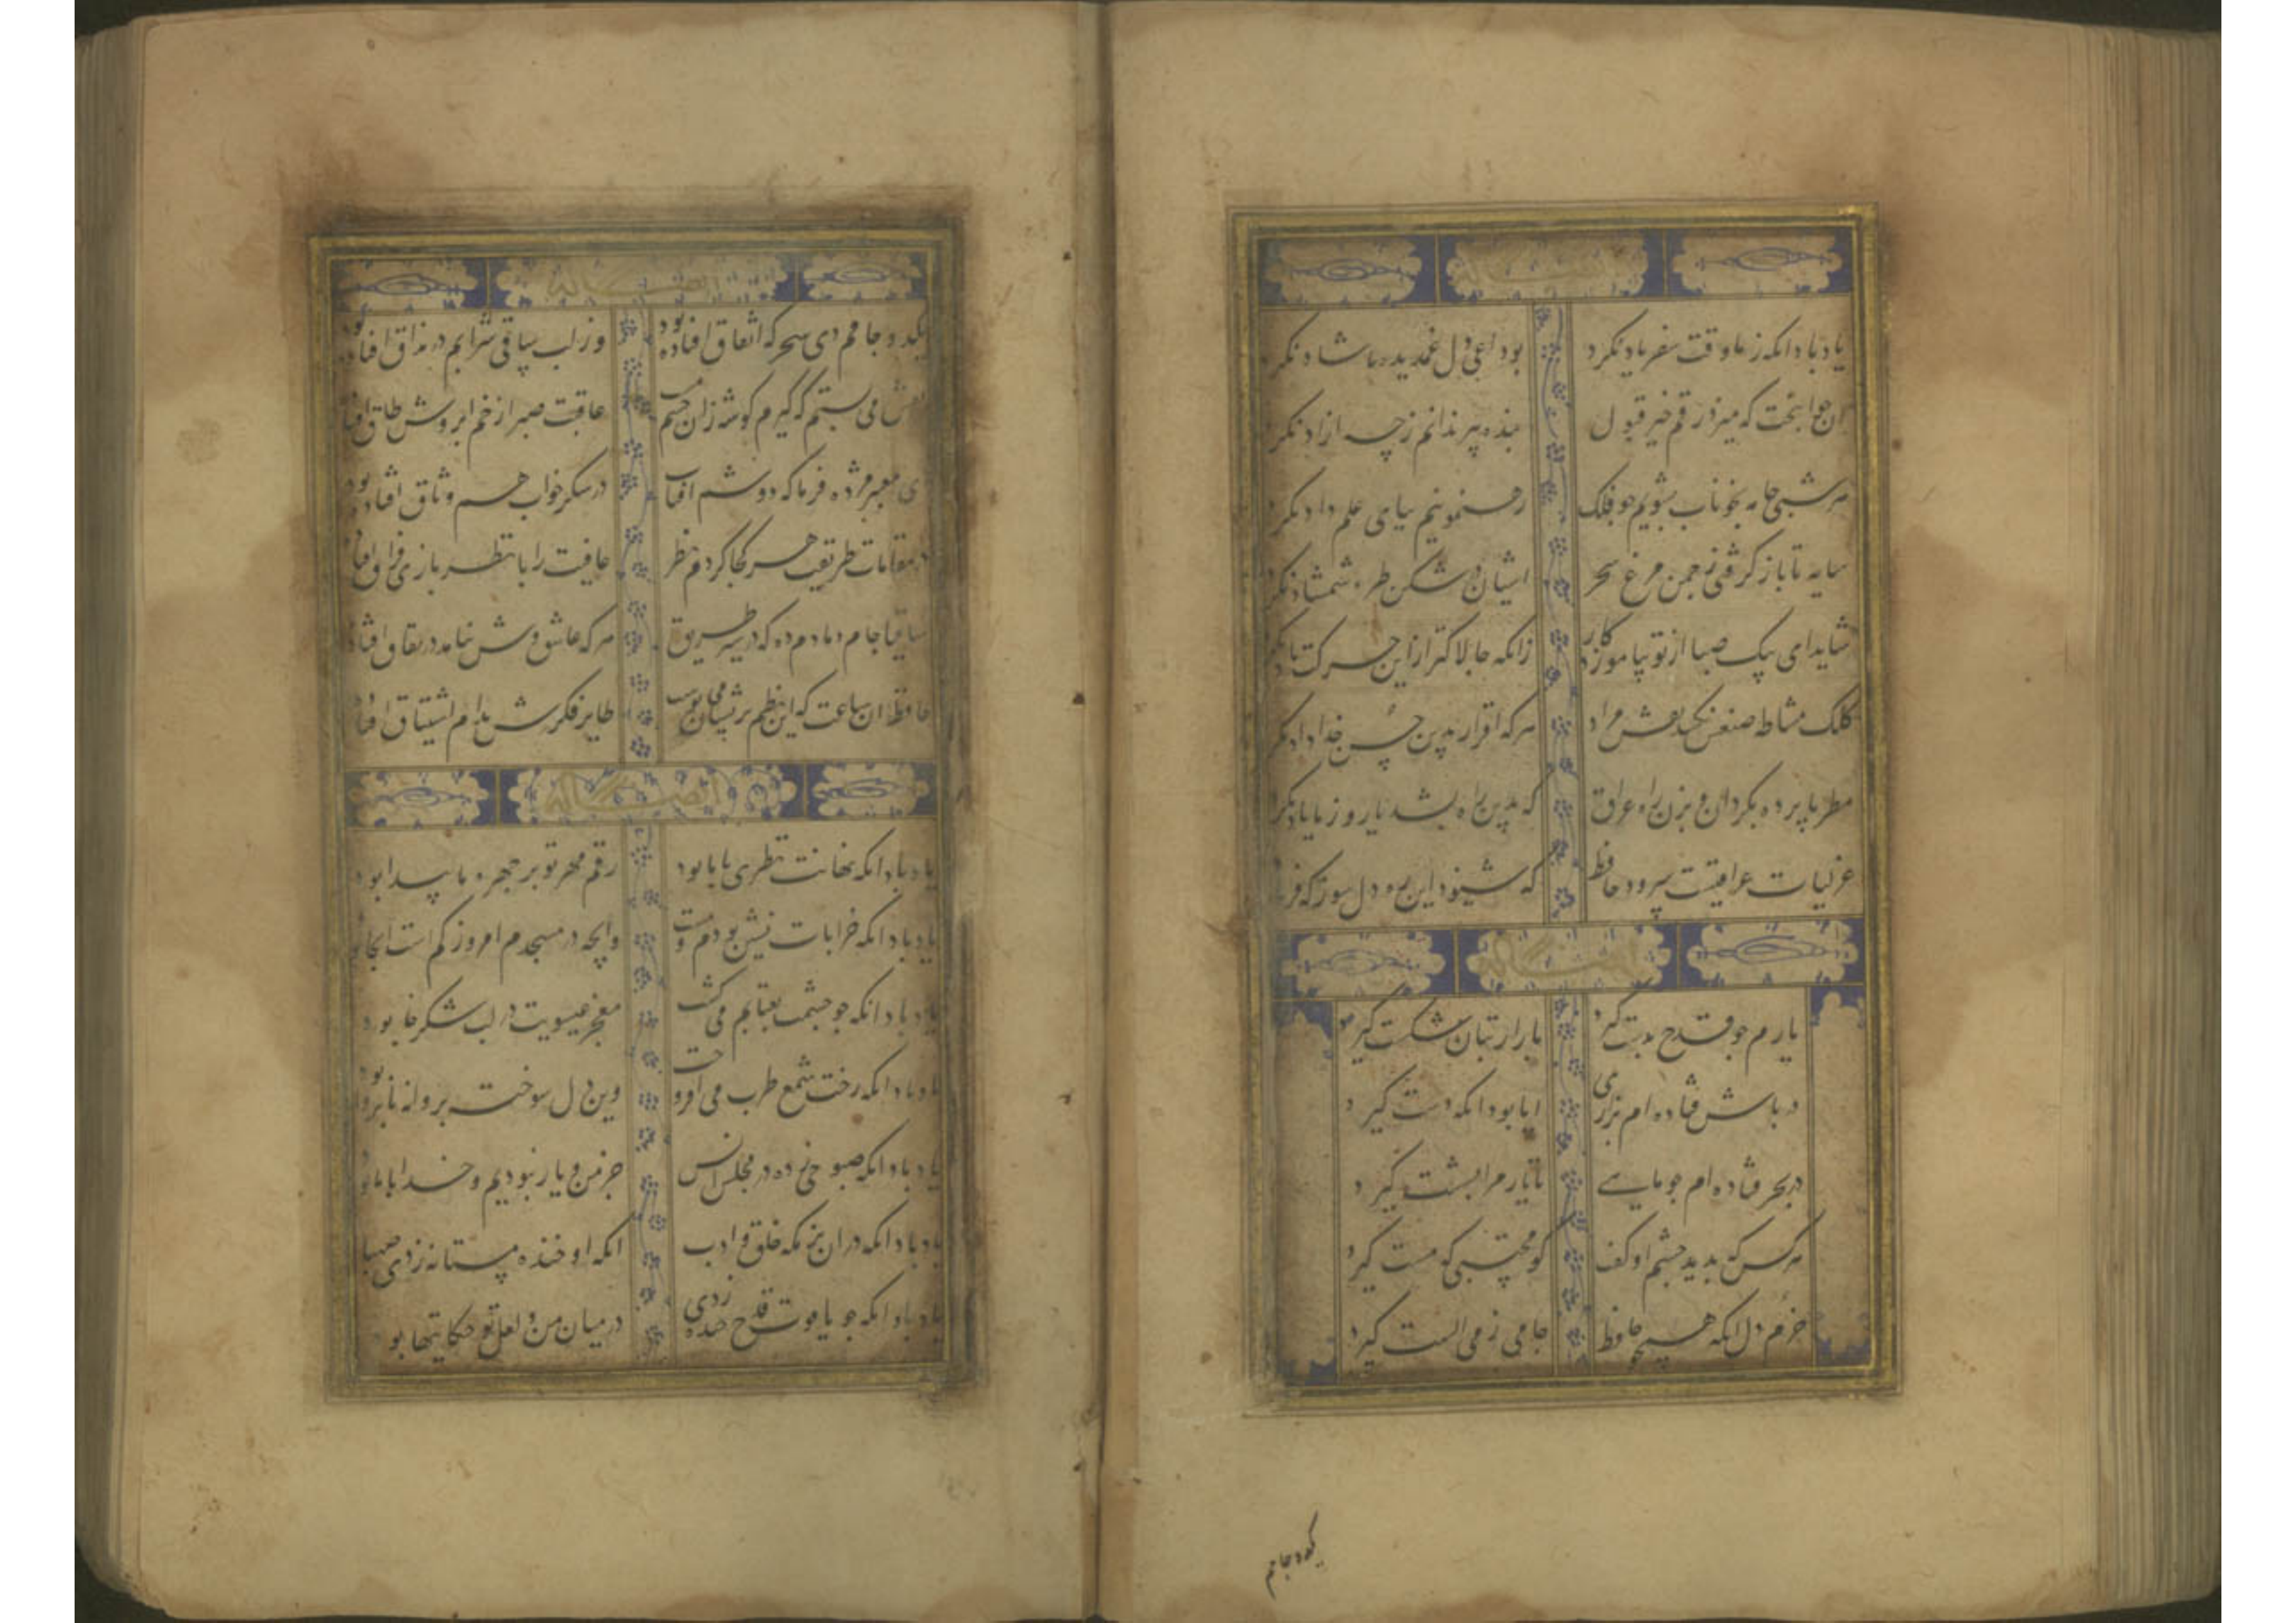 ایضا له
یاد باد انکه ز ما وقت سفر یاد نکرد بوداعی دل غمدیده ما شاد نکرد
ان جوانبخت که میزد رقم خیر قبول بنده پیر ندانم ز چه ازاد نکرد
هر شبی جامه بخوناب بشویم جو فلک رهنمونیم بپای علم داد نکرد
سایه تا باز کرفتی ز جمن مرغ سحر اشیان در شکن طره شمشاد نکرد
شاید ای پیک صبا از تو بیاموزد کار زانکه جالاکتر از این حرکت باد نکرد
کلک مشاطه صنعش نکشد نقش مراد هر که اقرار بدین حسن خداداد نکرد
مطربا پرده بکردان و بزن راه عراق که بدین راه بشد یار و ز ما یاد نکرد
غزلیات عراقیست سرود حافظ که شنود این ره دل سوز که فر
ایضا له
یارم جو قدح بدست کیرد بازار بتان شکست کیرد
در باش فتاده ام بزاری ایا بود انکه دست کیرد
در بحر فتاده ام جو ماهی تا یار مرا بشست کیرد
هر کس که بدید جشم او کفت کو محتسبی که مست کیرد
خرم دل انکه همچو حافظ جامی ز می الست کیرد
یکدو جامم
ایضا له
یکدو جامم دی سحر که اتفاق افتاده بود وز لب ساقی شرابم در مذاق افتاده بود
نقش می بستم که کیرم کوشه زان جشم مست عاقبت صبر از خم ابروش طاق افتا
ای معبر مژده فرما که دوشم افتاب در شکر خواب هم وثاق افتاده بود
در مقامات طریقت هر کجا کردم نظر عافیت را با نظر بازی فراق افتاد
ساقیا جام دمادم ده که در سیر طریق هر که عاشق وش نیامد در نفاق افتاد
حافظ ان ساعت که این نظم پریشان می نوشت طایر فکرش بدام اشتیاق افتاد
ایضا له
یاد باد انکه نهانت نظری با ما بود رقم مهر تو بر جهره ما پیدا بود
یاد باد انکه خرابات نشین بودم و مست وانجه در مسجدم امروز کم است انجا بود
یاد باد انکه جو جشمت بعتابم می کشت معجز عیسویت در لب شکر خا بود
یاد باد انکه رخت شمع طرب می افروخت وین دل سوخته پروانه نا پروا بود
یاد باد انکه صبوحی زده در مجلس انس جز من و یار نبودیم و خدا با ما بود
یاد باد انکه در ان بزمکه خلق و ادب انکه او خنده مستانه زدی صهبا
یاد باد انکه جو یاقوت قدح خنده زدی در میان من و لعل تو حکایتها بود